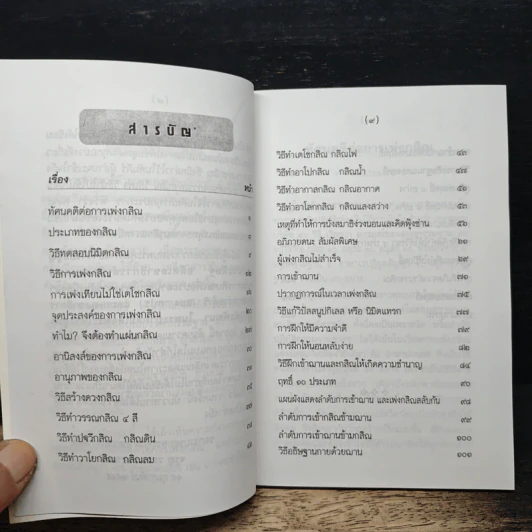 สารบัญ
เรื่อง หน้า
ทัศนคติต่อการเพ่งกสิณ ๑
ประเภทของกสิณ
วิธีทดสอบนิมิตกสิณ
วิธีการเพ่งกสิณ
การเพ่งเทียนไม่ใช่เตโชกสิณ
จุดประสงค์ของการเพ่งกสิณ
ทำไม? จึงต้องทำแผ่นกสิณ
อานิสงส์ของการเพ่งกสิณ
อานุภาพของกสิณ
วิธีสร้างดวงกสิณ
วิธีทำวรรณกสิณ ๔ สี
วิธีทำปฐวีกสิณ กสิณดิน
วิธีทำวาโยกสิณ กสิณลม
(๙)
วิธีทำเตโชกสิณ กสิณไฟ ๔๓
วิธีทำอาโปกสิณ กสิณน้ำ ๔๗
วิธีทำอากาสกสิณ กสิณอากาศ ๕๑
วิธีทำอาโลกกสิณ กสิณแสงสว่าง ๕๓
เหตุที่ทำให้การนั่งสมาธิง่วงนอนและคิดฟุ้งซ่าน ๕๖
อภิภายตนะ สัมผัสพิเศษ ๖๑
ผู้เพ่งกสิณไม่สำเร็จ ๖๙
การเข้าฌาน ๗๑
ปรากฏการณ์ในเวลาเพ่งกสิณ ๗๕
วิธีแก้วิปัสสนูปกิเลส หรือ นิมิตแทรก ๗๗
การฝึกให้มีความจำดี ๗๙
การฝึกให้นอนหลับง่าย ๘๒
วิธีฝึกเข้าฌานและกสิณให้เกิดความชำนาญ ๘๔
ฤทธิ์ ๑๐ ประเภท ๙๐
แผนผังแสดงลำดับการเข้าฌาน และเพ่งกสิณสลับกัน ๙๘
ลำดับการเข้ากสิณข้ามฌาน ๙๙
ลำดับการเข้าฌานข้ามกสิณ ๑๐๐
วิธีอธิษฐานกายด้วยฌาน ๑๐๑